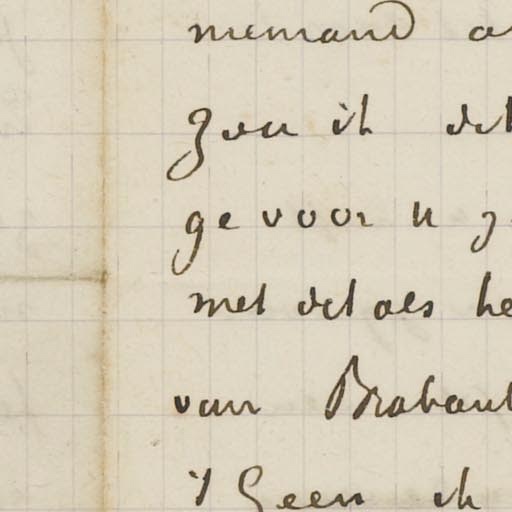 niemand
zou ik dit
ge voor u
met dit als he
van Brabant
't geen ik